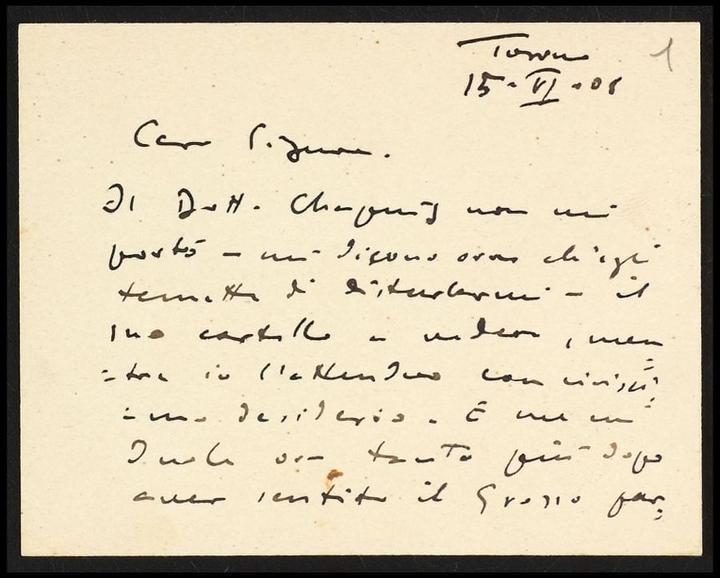 Torino
1
15-VI-08
Caro Signore.
Il Dott. Chapuis non mi
portò - mi dicono ora ch'egli
temette di disturbarmi - il
suo cartello a vedere, men
=tre io l'attendevo con vivissi=
=mo desiderio. E me ne
duole ora tanto più dopo
aver sentito il Grosso par=